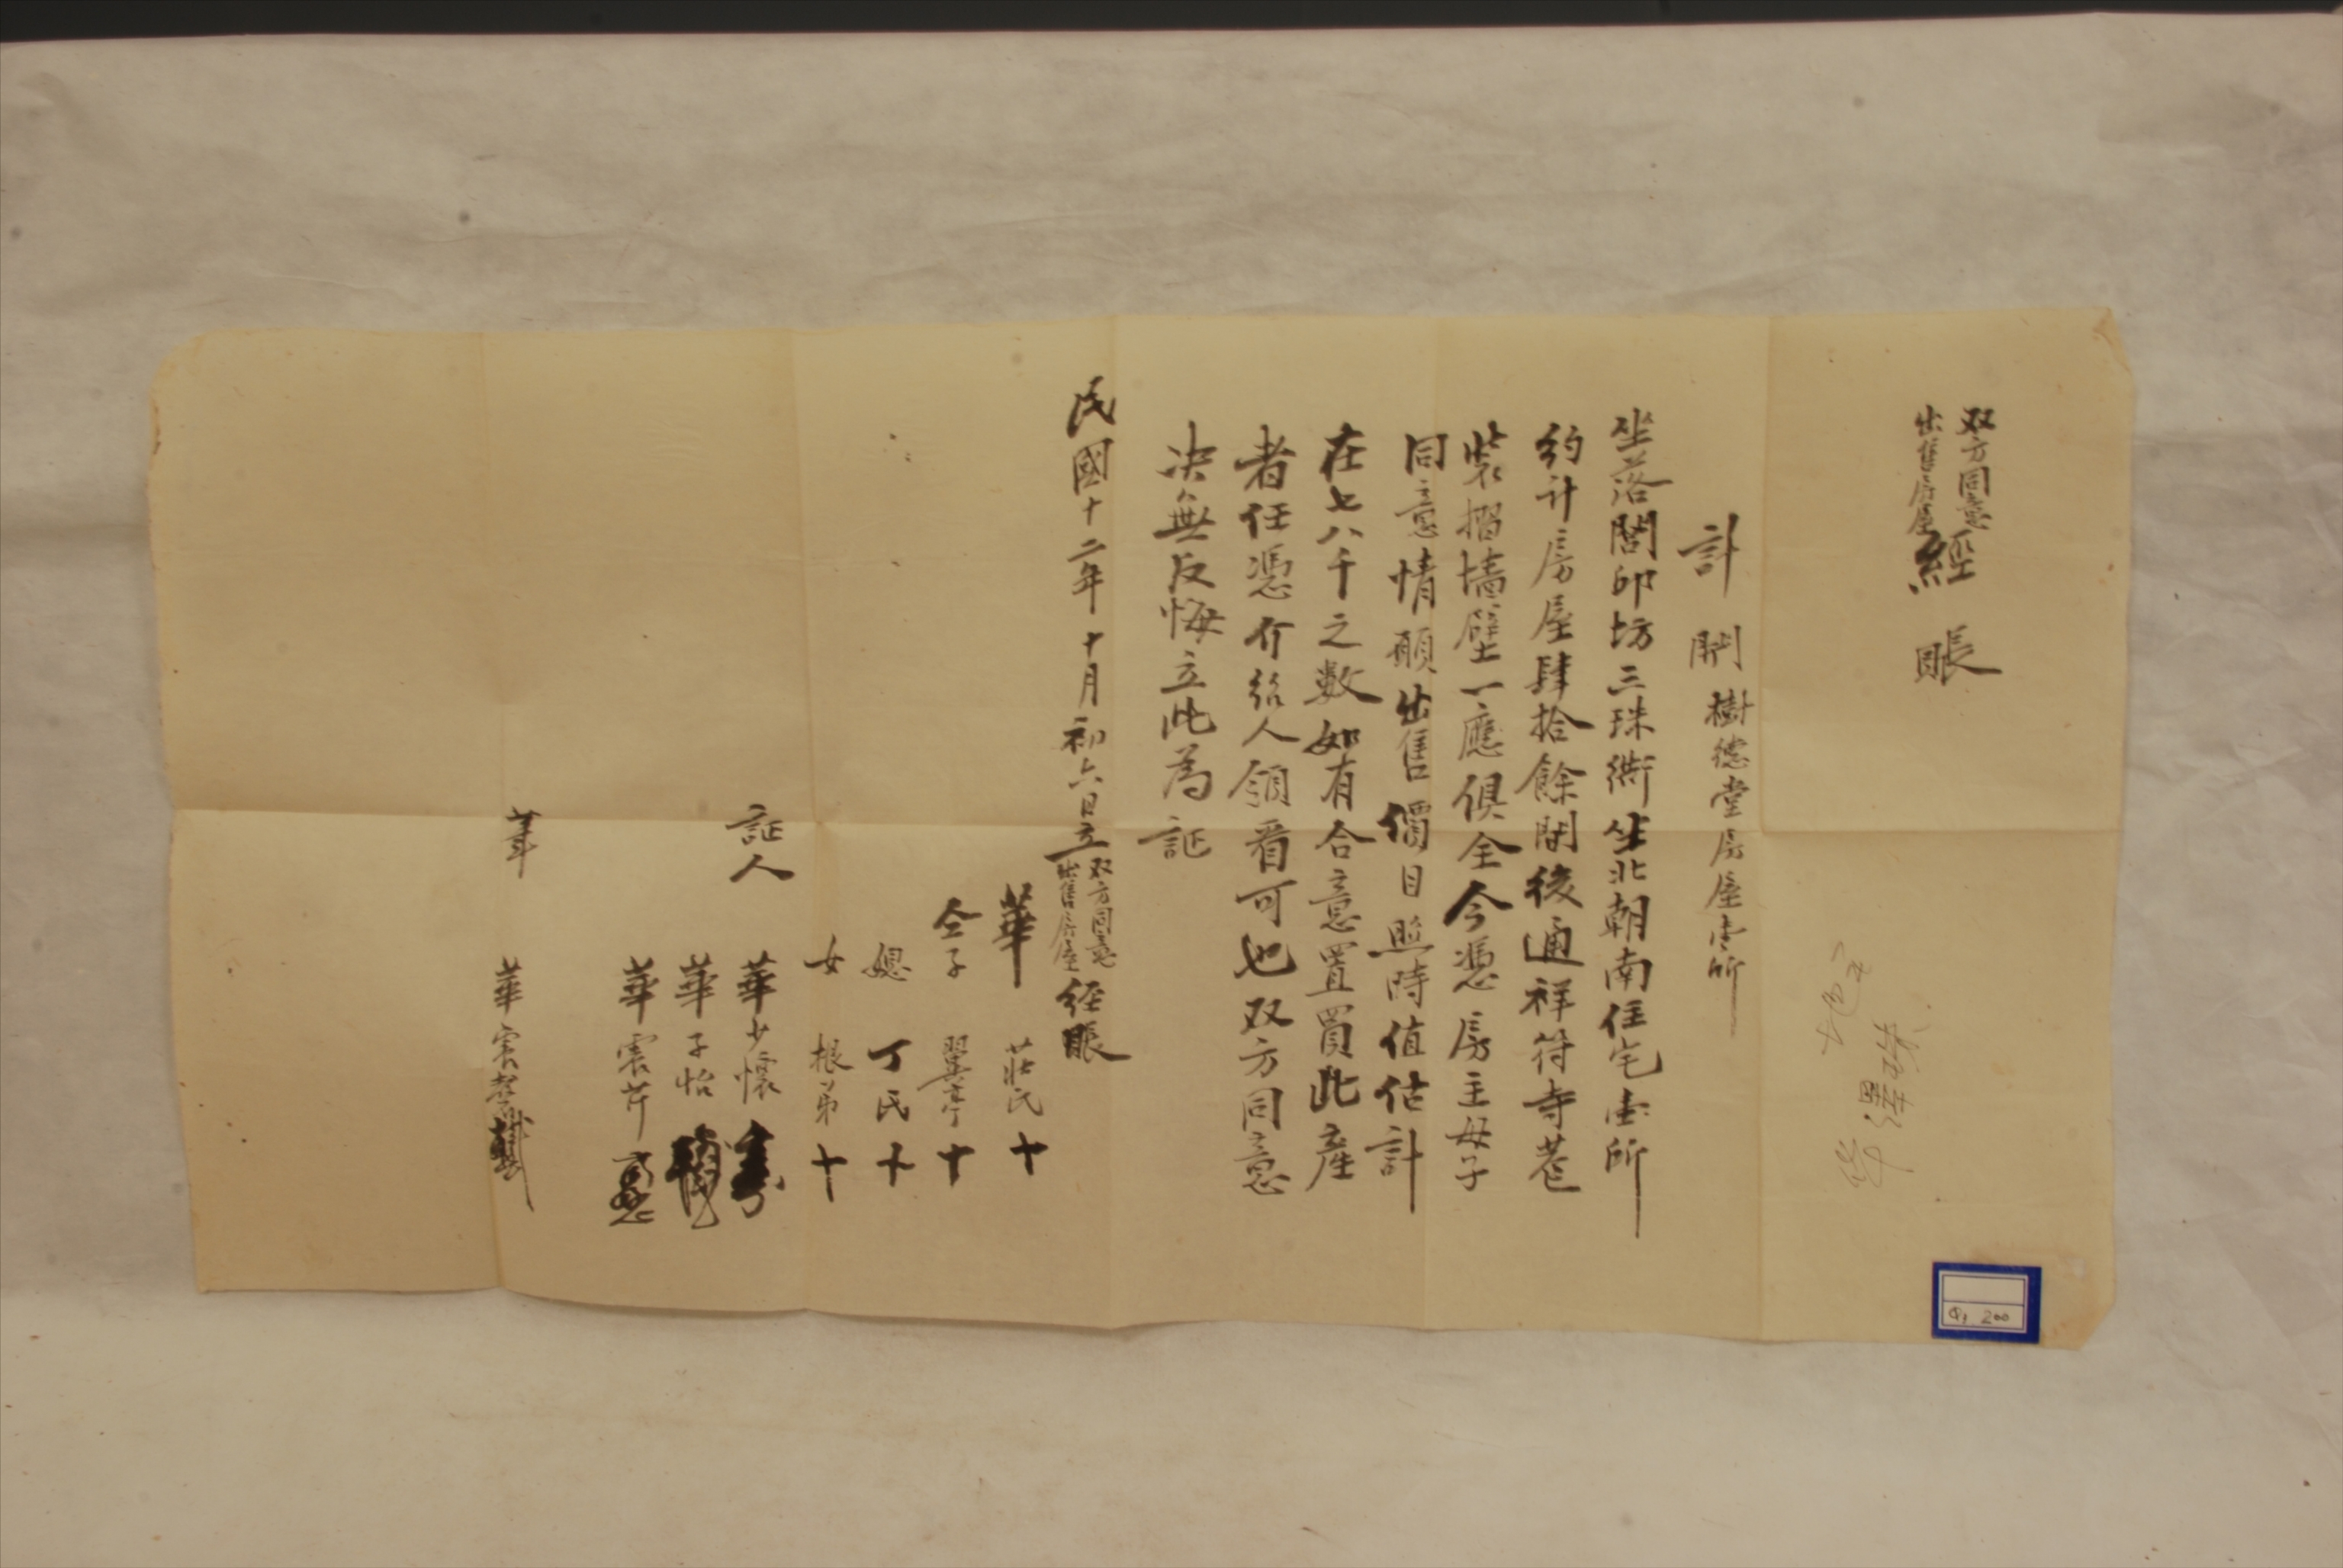 双方同意
出售房屋
經賬
計開樹德堂房屋壹所
坐落閶邱坊三珠衖坐北朝南住宅壹所
約計房屋肆拾餘間後通祥符寺巷
裝摺墻壁一應俱全今憑房主母子
同意情願出售價目照時值估計
在七八千之數如有合意置買此產
者任憑介紹人領看可也双方同意
决無反悔立此為証
民國十二年十月初六日立双方同意出售房屋經賬
華莊氏十
仝子翼亭十
媳丁氏十
女根弟十
証人華少懷
華子怡
華震芹
筆華
200